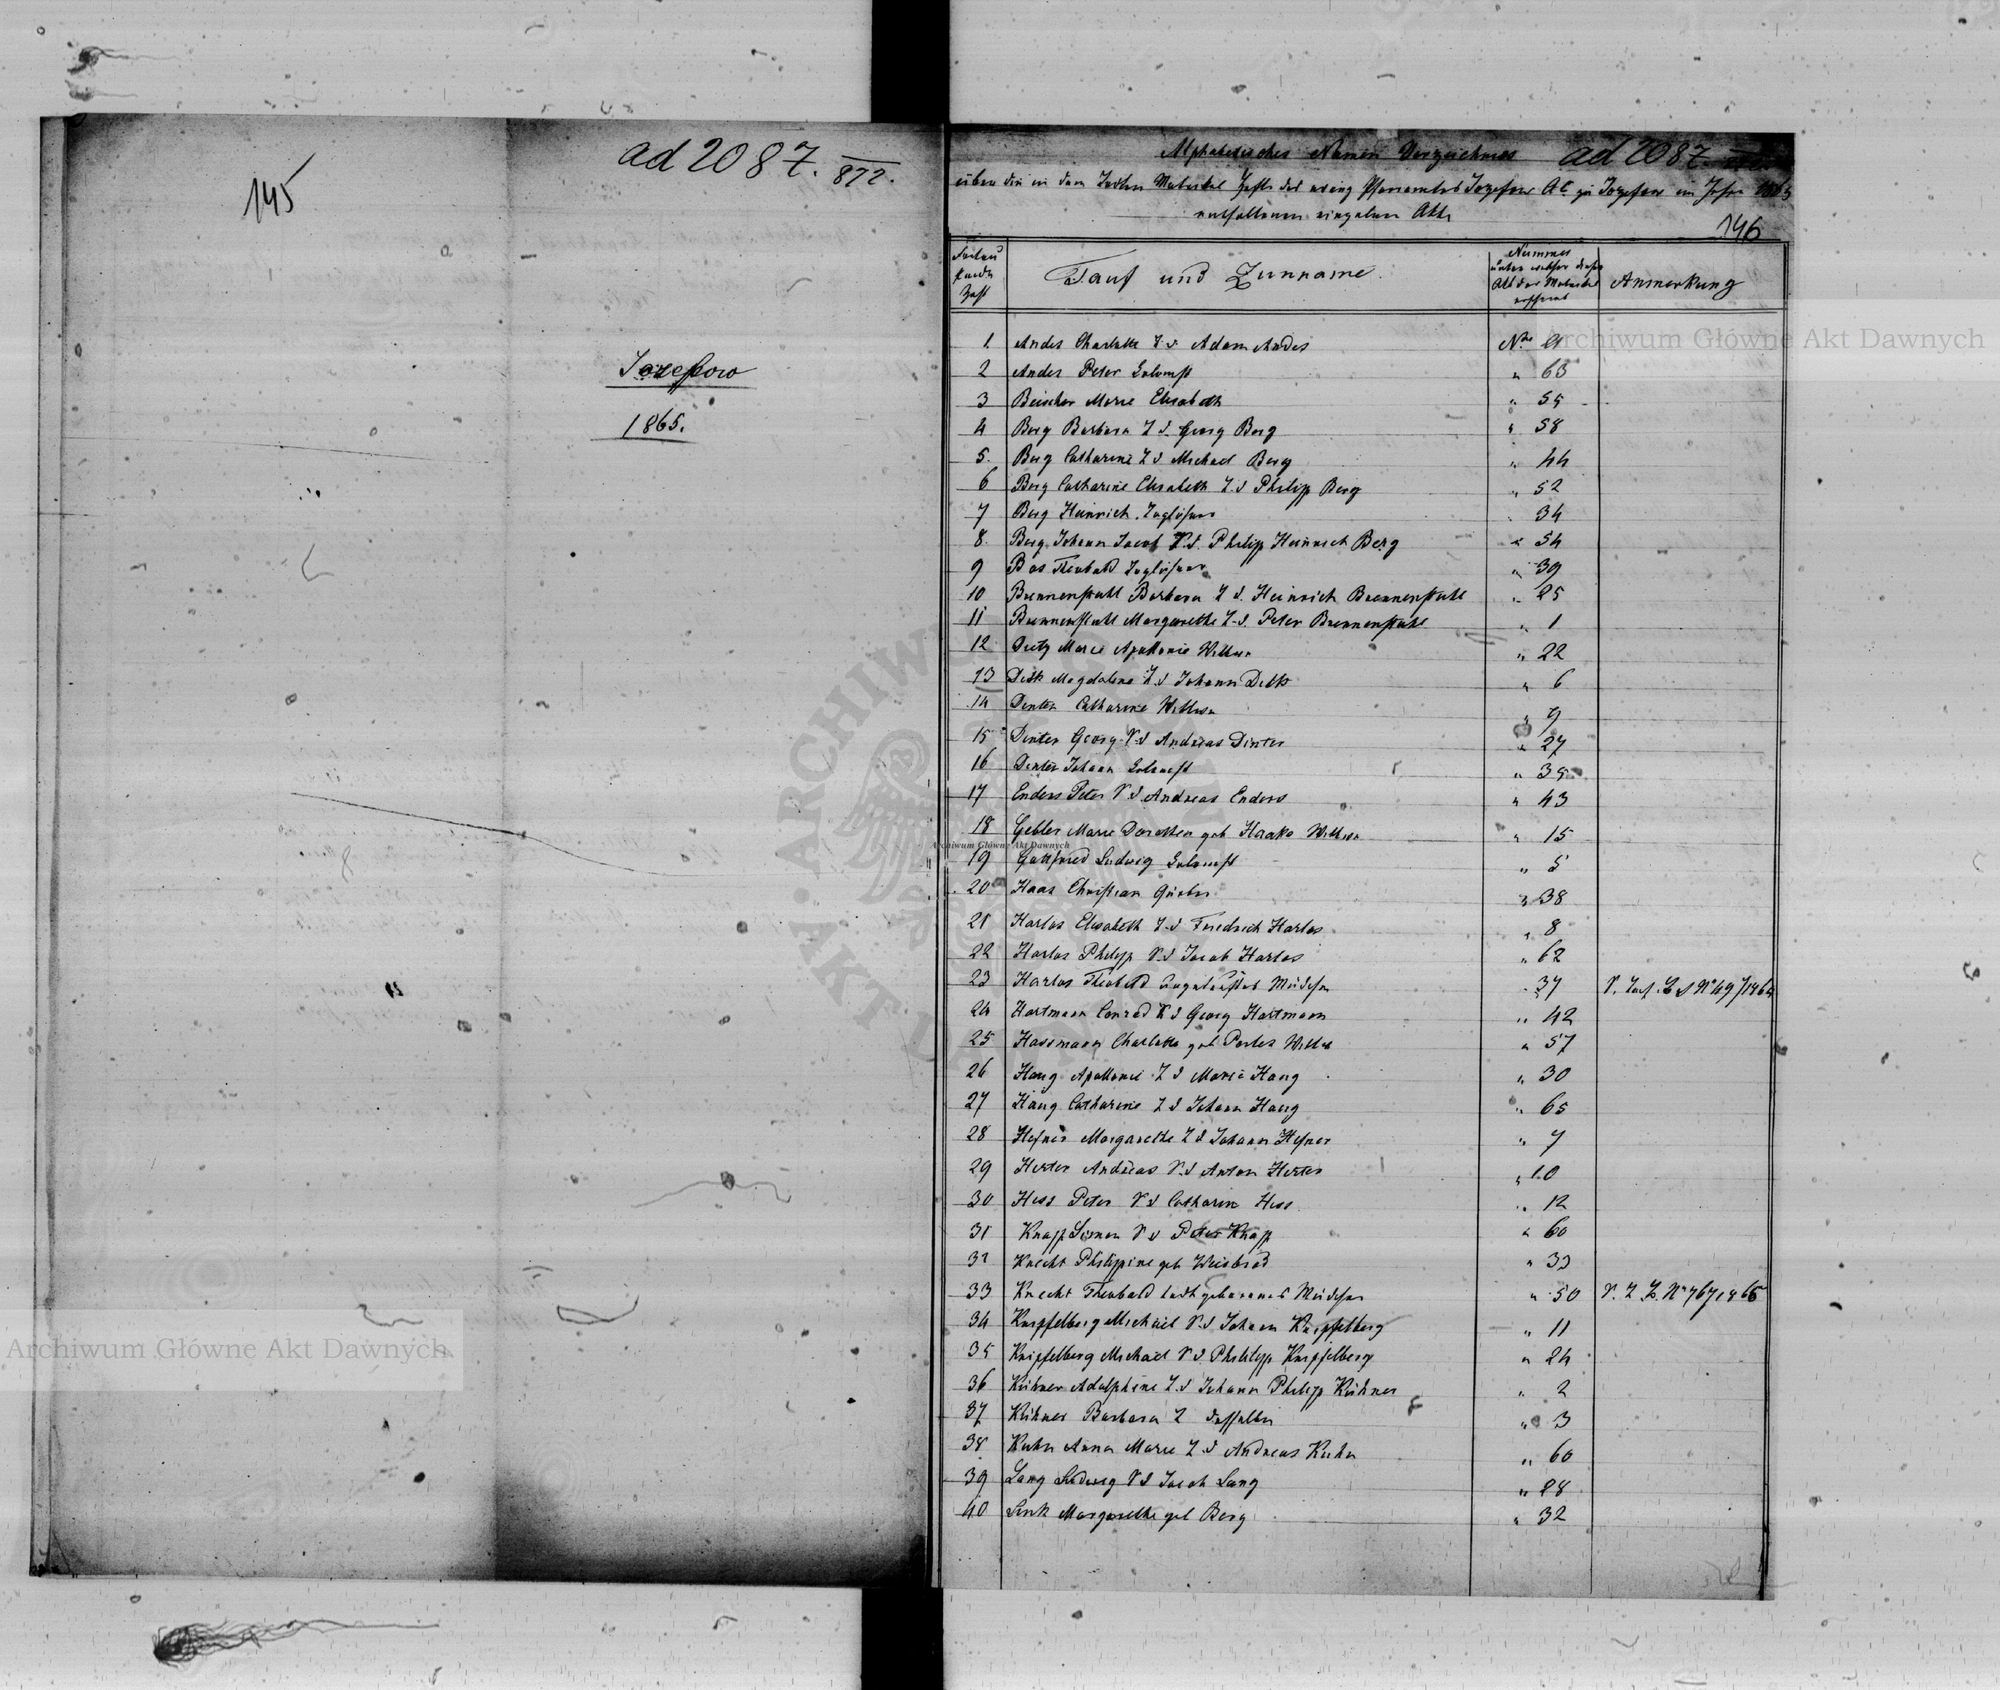 145
ad 2087. 872.
Jozefow
1865.
Alphabetisches Namen Verzeichniss ad 2087
über die in dem Todten Matrikel Hefte des evang Pfarramtes Jozefow A.C. zu Jozefow im Jahre 1865
enthaltenen einzelnen Akte
146
Tauf und Zunname.
Nummer
unter welcher dieser
Akt der Matrikel
Anmerkung
1 Andes Charlotte T d Adam Andes Nro 21
2 Andes Peter 63
3 Beischer Marie Elisabeth " 55
4 Berg Barbara T d. Georg Berg " 58
5. Berg Catharine T d Michael Berg " 44
6 Berg Catharine Elisabeth T. d Philipp Berg " 52
7 Berg Heinrich, Taglöhner 34
8. Berg Johann Jacob S. d. Philipp Heinrich Berg " 54
9 Bos Theobald Taglöhner " 39
10 Brennenstuhl Barbara T d. Heinrich Brennenstuhl " 25
11 Brennenstuhl Margarethe T. d. Peter Brennenstuhl " 1
12 Dietz Marie Apollonie Wittwe " 22
13 Dilk Magdalena T. d Johann Dilk " 6
14 Dinter Catharine Wittwe " 9
15 Dinter Georg S. d Andreas Dinter " 27
16 Dinter Johann " 35
17 Enders Peter S d Andreas Enders " 43
18 Gebler Marie Dorothea geb Haake Wittwe " 15
19 Gottfried Ludwig " 5
20 Haas Christian " 38
21 Harlos Elisabeth T. d Friedrich Harlos " 8
22 Harlos Philipp S. d Jacob Harlos " 62
23 Harlos Theobald Mädchen " 37
24 Hartmann Conrad S d Georg Hartmann " 42
25 Hassmann Charlotte geb Wittwe " 57
26 Haug Apollonie T d Marie Haug " 30
27 Haug Catharine T d Johann Haug " 65
28 Hefner Margarethe T d Johann Hefner " 7
29 Herter Andreas S. d Anton Herter " 10
30 Hess Peter S d Catharine Hess " 12
31 Knapp Simon S d Peter Knapp " 60
32 Knecht Philippine geb Weisbrod " 33
33 Knecht Theobald todtgebornes Mädchen " 50
34 Knipfelberg Michael S. d Johann Knipfelberg " 11
35 Knipfelberg Michael S d Philipp Knipfelberg " 24
36 Kühner Adolphine T. d Johann Philipp Kühner " 2
37 Kühner Barbara T desselben " 3
38 Kuhn Anna Marie T. d Andreas Kuhn " 60
39 Lang Ludwig S d Jacob Lang " 28
40 Link Margarethe geb Berg " 32